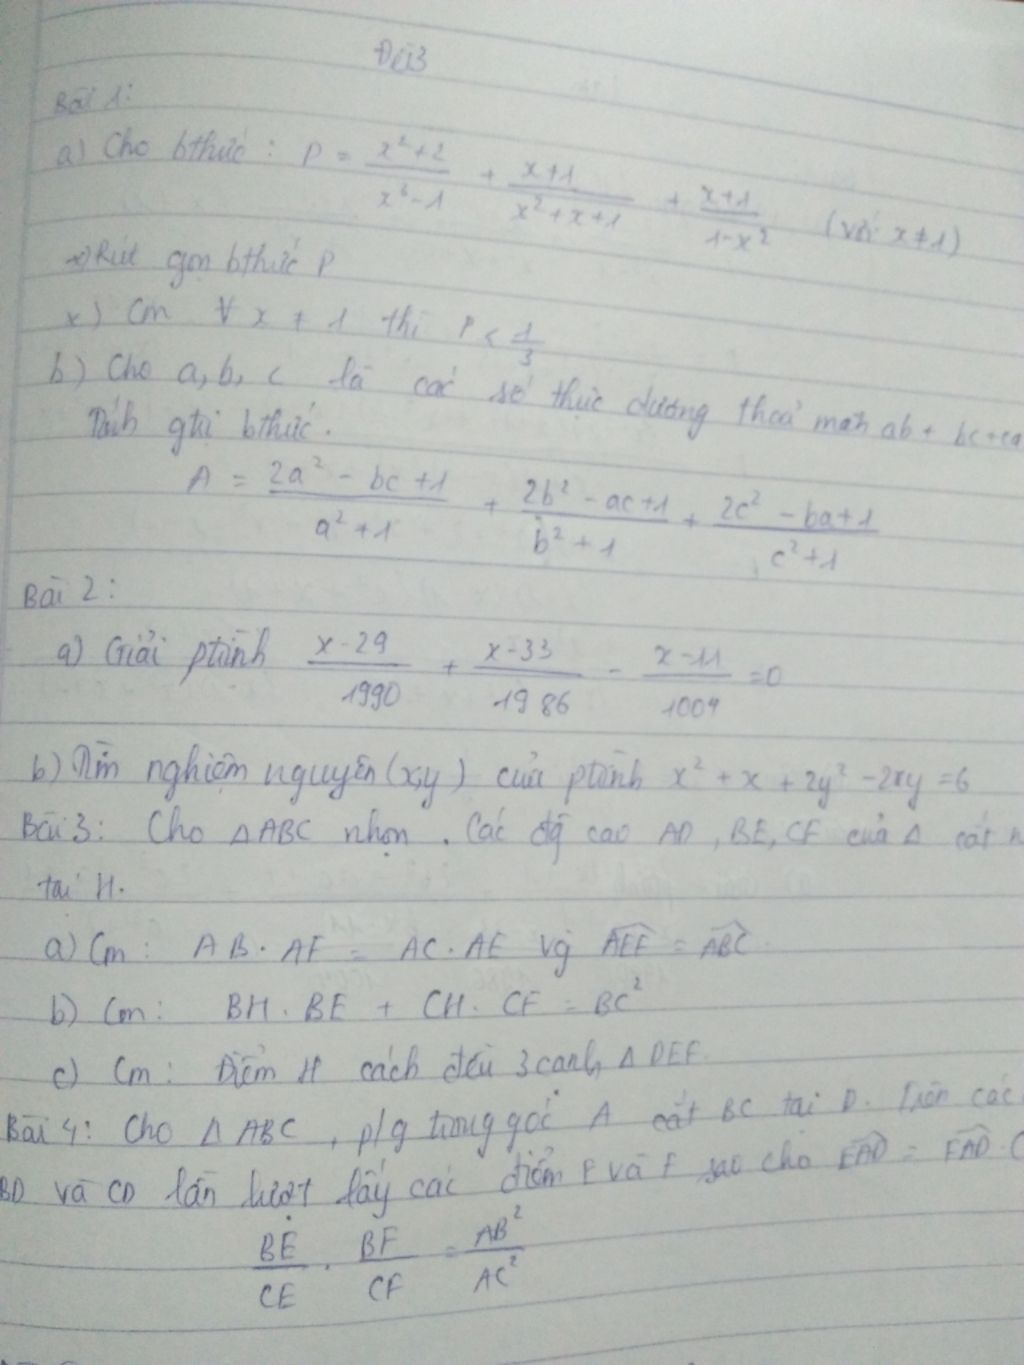 Đề 3
Bài 1:
a) Cho bthức: P = \frac{x^2+2}{x^6-1} + \frac{x+1}{x^2+x+1} + \frac{x+1}{1-x^2} (với x≠1)
Rút gọn bthức P
x) Cm ∀ x ≠ 1 thì P < \frac{1}{3}
b) Cho a, b, c là các số thực dương thoả mãn ab + bc + ca
Tính gtrị bthức.
A = \frac{2a^2 - bc + 1}{a^2 + 1} + \frac{2b^2 - ac + 1}{b^2 + 1} + \frac{2c^2 - ba + 1}{c^2 + 1}
Bài 2:
a) Giải ptrình \frac{x-29}{1990} + \frac{x-33}{1986} - \frac{x-11}{1004} = 0
b) Tìm nghiệm nguyên (x,y) của ptrình x^2 + x + 2y^2 - 2xy = 6
Bài 3: Cho △ABC nhọn. Các đg cao AD, BE, CF của △ cắt
tại H.
a) Cm: AB . AF = AC . AE và \widehat{AEF} = \widehat{ABC}.
b) Cm: BH . BE + CH . CF = BC^2
c) Cm: Điểm H cách đều 3 cạnh △ DEF.
Bài 4: Cho △ ABC, p/g trong góc A cắt BC tại D. Trên các
BD và CD lần lượt lấy các điểm E và F sao cho \widehat{EAD} = \widehat{FAD}. C
\frac{BE}{CE} . \frac{BF}{CF} = \frac{AB^2}{AC^2}